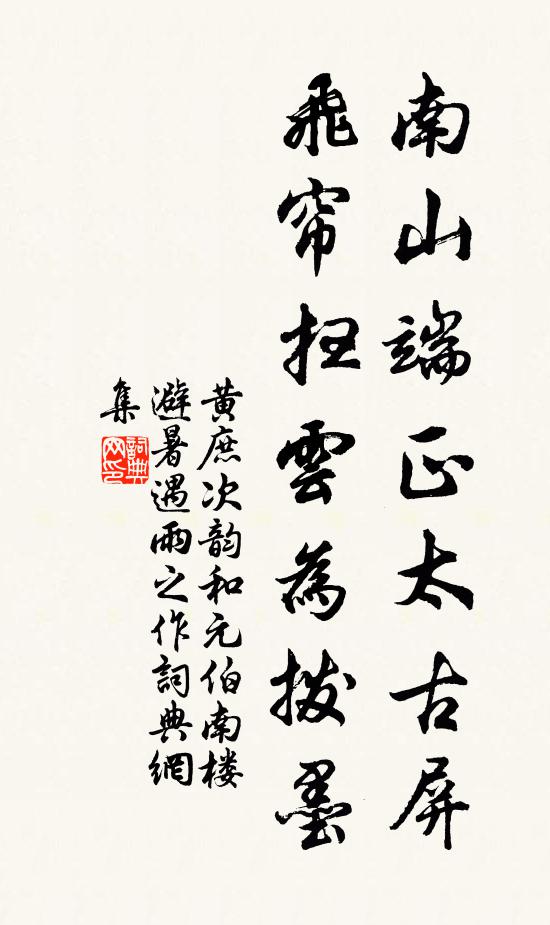 南山端正太古屏
飛帘扫雲為拨墨
黄庶次韵和元伯南楼
避暑遇雨之作詞典網
集
詞典
网印